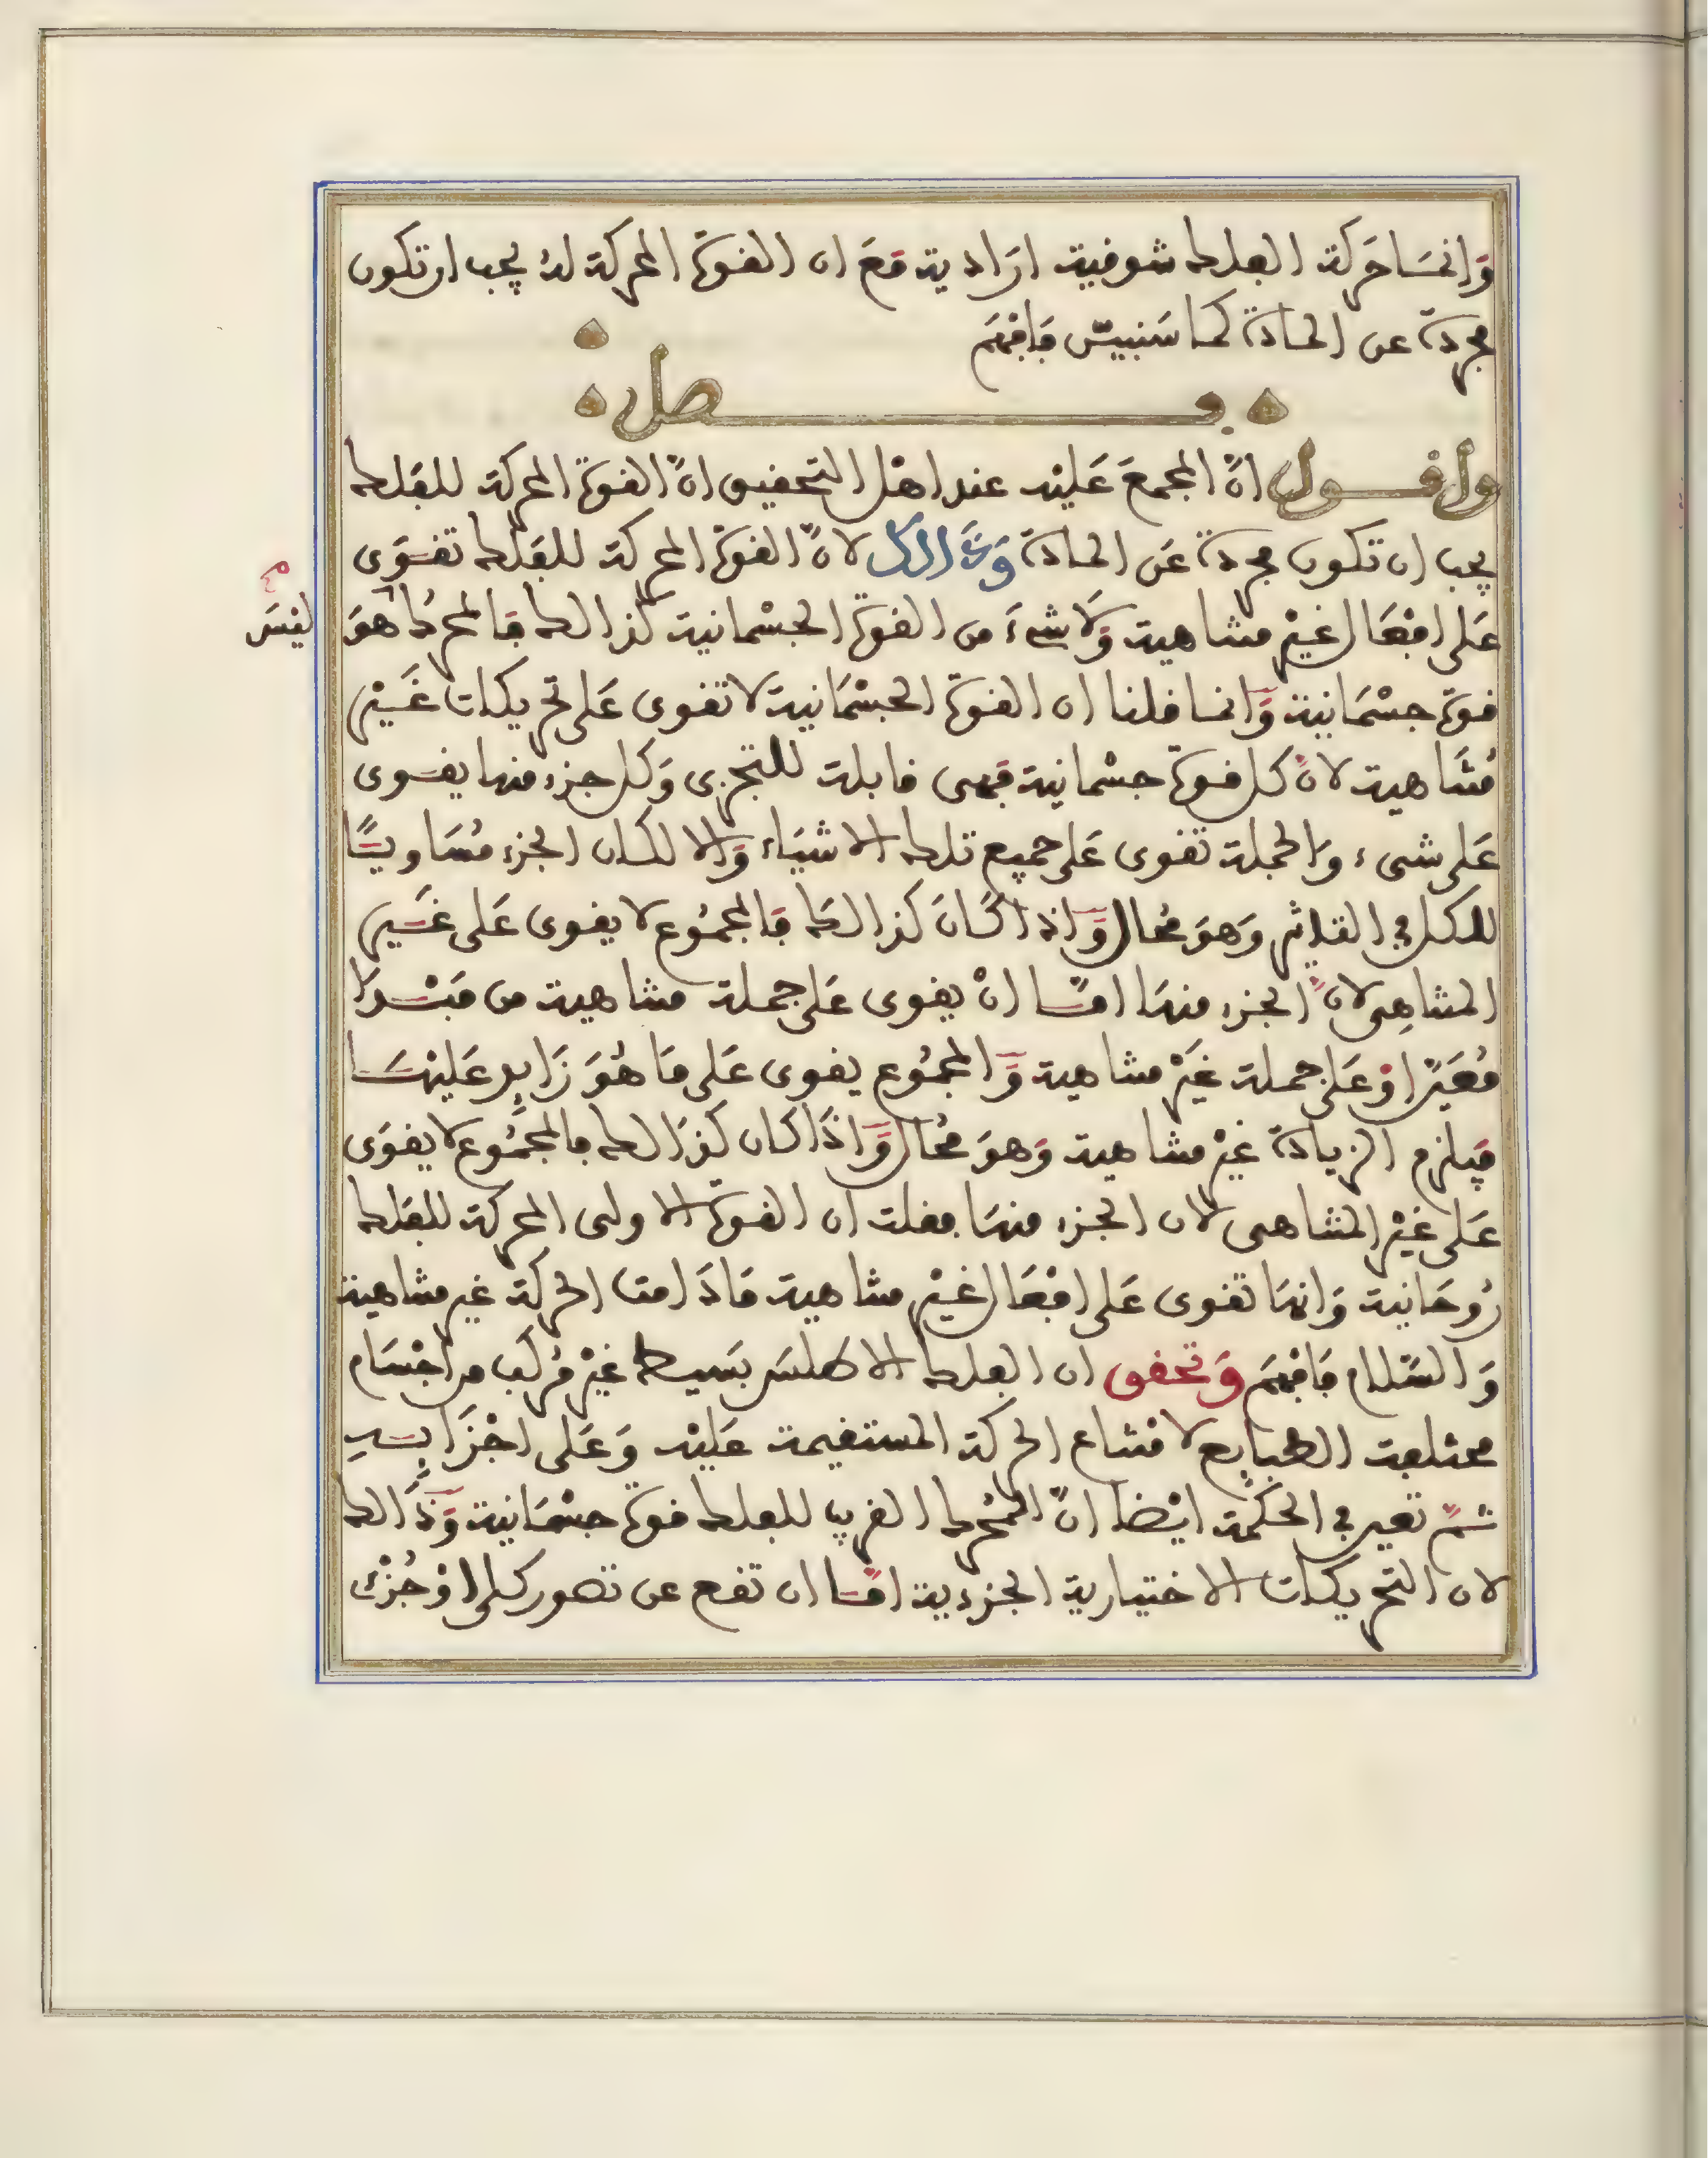 وَإنمَا حَركة الفلك شوقية ارَادية مَعَ ان القوّة المحركة لهُ يجب ان تكون
مجردة عن المادة كما سَنبيّن فَافهَم
فصل
وأقول انّ المجمعَ عَليْه عند اهْل التحقيق انّ القوّة المحركة للفَلك
يجب ان تكون مجردة عَن المادة وَذَالك لانّ القوّة المحركة للفَلك تقوَى
عَلى افْعَال غيْر متناهية وَلَا شيءَ من القوّة الجسْمانية كذالك فالمحرك هوَ
ليْسَ
قوّة جسْمَانية وَانما قلنا ان القوّة الجسْمَانية لا تقوى عَلى تحريكات غَيْر
مُتَناهية لانّ كل قوّة جسْمانية فهى قابلة للتجزى وَكل جزء منها يقوى
عَلى شىء والجملة تقوى عَلى جميع تلك الاشيَاء وَالا لكان الجزء مُسَاويًا
للكل في التاثير وَهوَ مُحال وَاذا كَانَ كذالكَ فالمجمُوع لا يقوى عَلى غَير
المتناهِى لانّ الجزء منهَا امّا انْ يقوى عَلى جملة متناهية من مَبْدَا
مُعَيّن اوْ عَلى جملة غَيْر متناهية وَالمجمُوع يقوى عَلى مَا هُوَ زَايد عَليْهَا
فيلزم الزيادة غيْر متناهية وَهوَ مُحال وَاذَا كان كذالك فالمجمُوع لا يقوَى
عَلى غيْر المتناهى لان الجزء منهَا فقلت ان القوّة الاولى المحركة للفَلك
رُوحَانية وَانهَا تقوى عَلى افْعَال غيْر متناهية مَادَامت الحركة غير متناهية
وَالسّلام فَافهَم وَتحقق ان الفلك الاطلسَ بَسيط غيْر مُركب من اجْسَام
مختلفة الطبَايع لامْتناع الحركة المستقيمة عَليْه وَعَلى اجْزَايه
ثمّ تعين في الحكمَة ايْضا انّ المُحرك القريب للفلك قوّة جسْمَانية وَذَالك
لان التحريكات الاختيارية الجزءية امّا ان تقع عن تصور كلى اوْ جُزْئى